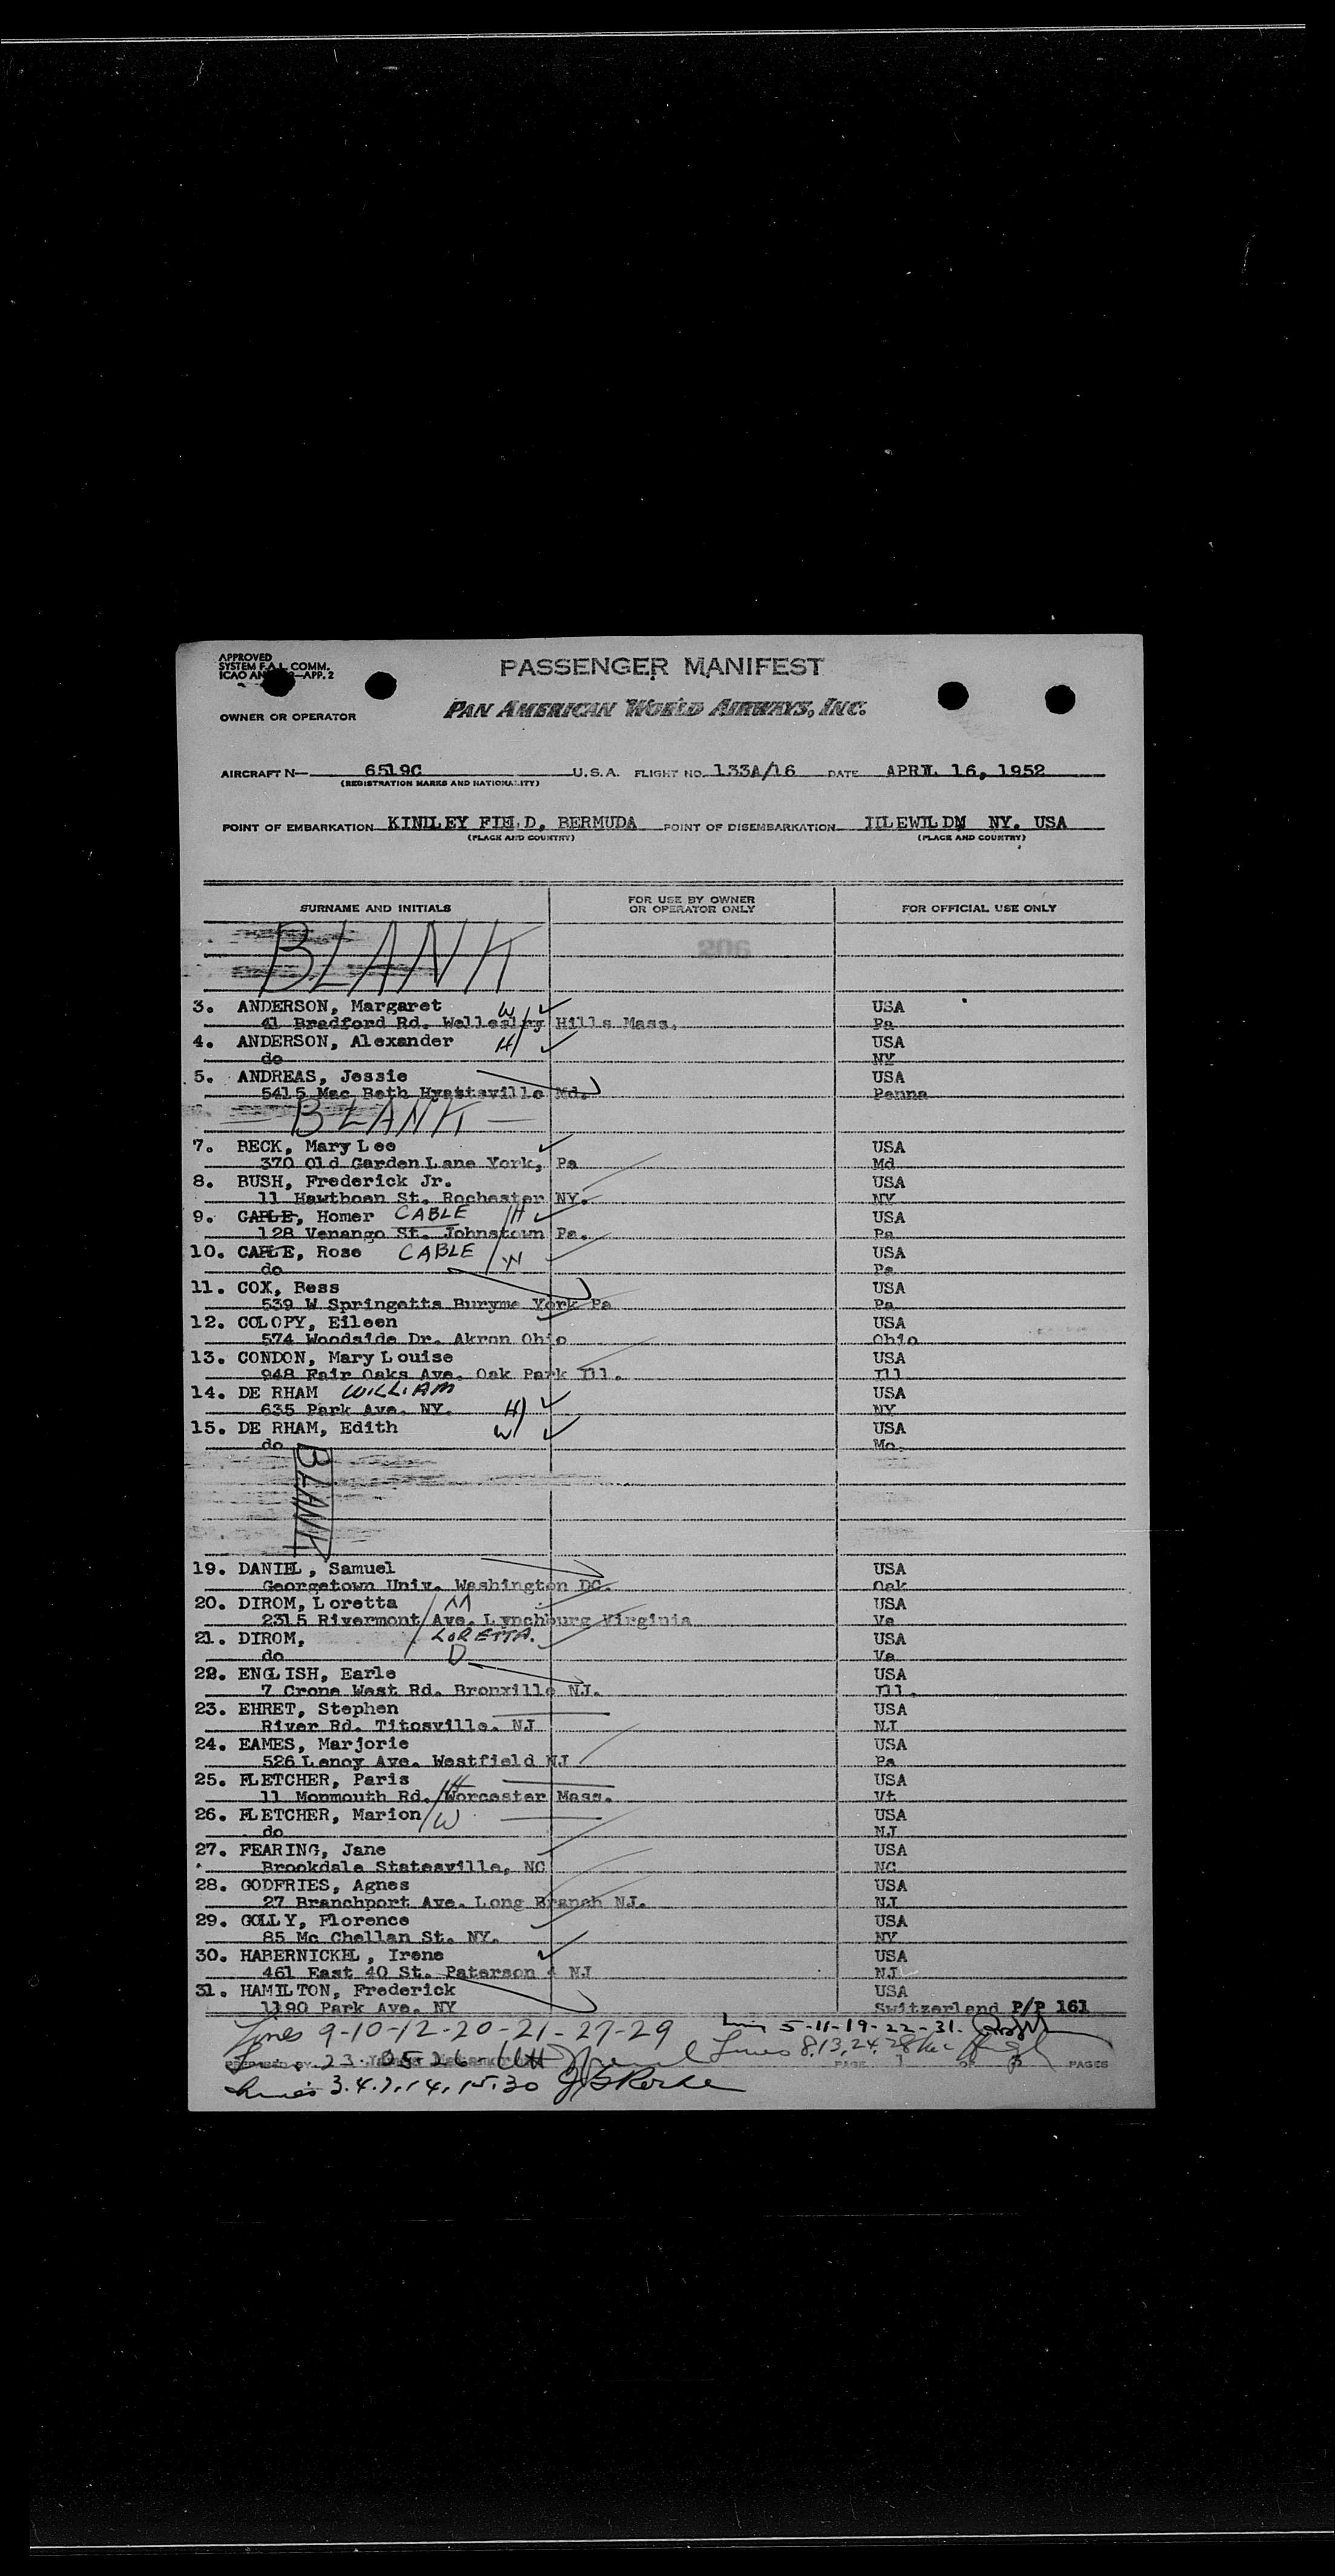 APPROVED
SYSTEM F.A.L. COMM.
ICAO AN —APP. 2
PASSENGER MANIFEST
OWNER OR OPERATOR PAN AMERICAN WORLD AIRWAYS, INC.
AIRCRAFT N— 6519C U.S.A. FLIGHT NO. 133A/16 DATE APRIL 16, 1952
(REGISTRATION MARKS AND NATIONALITY)
POINT OF EMBARKATION KINDLEY FIELD, BERMUDA POINT OF DISEMBARKATION IILEWILDM NY. USA
(PLACE AND COUNTRY) (PLACE AND COUNTRY)
SURNAME AND INITIALS FOR USE BY OWNER OR OPERATOR ONLY FOR OFFICIAL USE ONLY
BLANK
3. ANDERSON, Margaret W USA
41 Bradford Rd. Wellesley Hills Mass. Pa
4. ANDERSON, Alexander H USA
do NY
5. ANDREAS, Jessie USA
5415 Mac Beth Hyattsville Md. Penna
BLANK
7. BECK, Mary Lee USA
370 Old Garden Lane York, Pa Md
8. BUSH, Frederick Jr. USA
11 Hawthoen St. Rochester NY. NY
9. CAPLE, Homer CABLE H USA
128 Venango St. Johnstown Pa. Pa
10. CAPLE, Rose CABLE W USA
do Pa
11. COX, Bess USA
539 W Springetts Buryme York Pa Pa
12. COLOPY, Eileen USA
574 Woodside Dr. Akron Ohio Ohio
13. CONDON, Mary Louise USA
948 Fair Oaks Ave. Oak Park Ill. Ill
14. DE RHAM WILLIAM USA
635 Park Ave. NY. H NY
15. DE RHAM, Edith W USA
do Mo
BLANK
19. DANIEL, Samuel USA
Georgetown Univ. Washington DC. Oak
20. DIROM, Loretta M USA
2315 Rivermont Ave. Lynchburg Virginia Va
21. DIROM, LORETTA. USA
do D Va
22. ENGLISH, Earle USA
7 Crone West Rd. Bronxille NJ. Ill.
23. EHRET, Stephen USA
River Rd. Titosville. NJ NJ
24. EAMES, Marjorie USA
526 Lenoy Ave. Westfield NJ Pa
25. FLETCHER, Paris H USA
11 Monmouth Rd. Worcester Mass. Vt
26. FLETCHER, Marion W USA
do NJ
27. FEARING, Jane USA
Brookdale Statesville, NC NC
28. GODFRIES, Agnes USA
27 Branchport Ave. Long Branch NJ. NJ
29. GOLLY, Florence USA
85 Mc Chellan St. NY. NY
30. HABERNICKEL, Irene USA
461 East 40 St. Paterson 4 NJ NJ
31. HAMILTON, Frederick USA
1190 Park Ave. NY Switzerland P/P 161
Lines 9-10-12-20-21-27-29 5-11-19-22-31.
PREPARED BY 23 Lines 8,13,24,28 PAGE 1 OF 3 PAGES
Lines 3.4.7.14.15.30